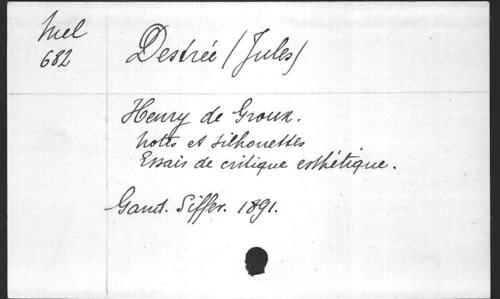 Mel
682
Destrée (Jules)
Henry de Groux.
Notes et silhouettes
Essais de critique esthétique.
Gand. Siffer. 1891.